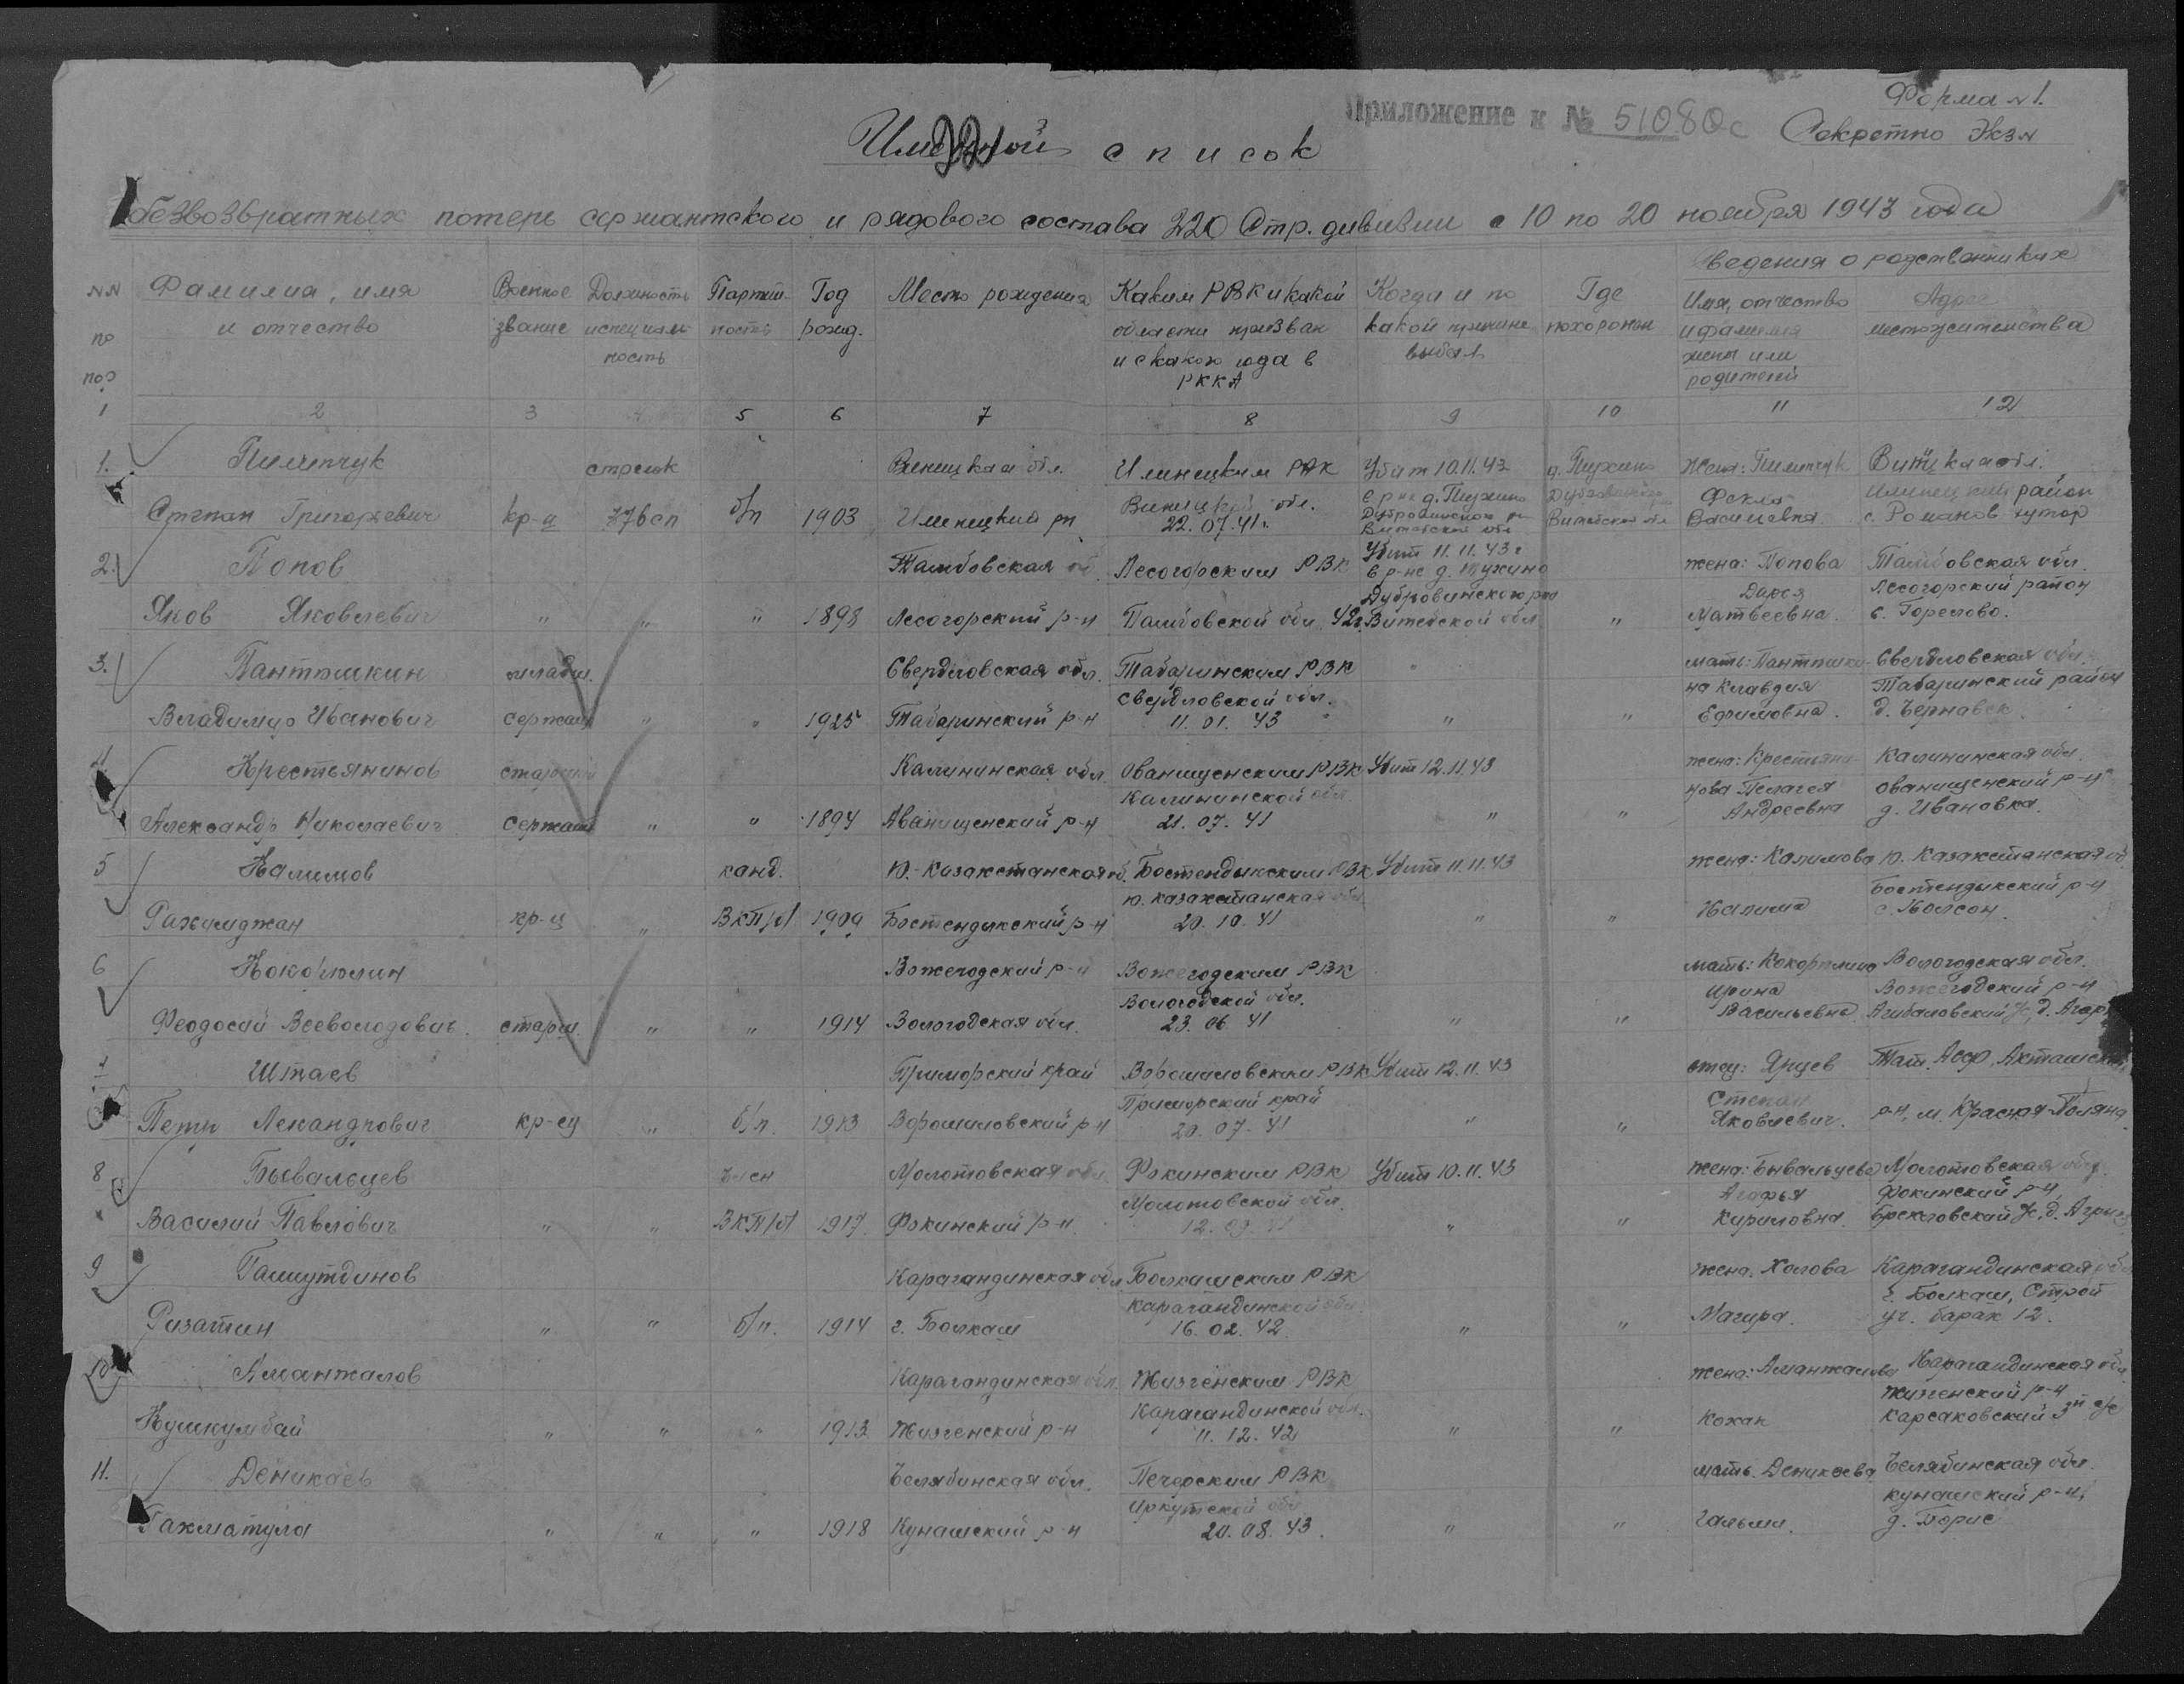 Форма №1.
Приложение к № 51080с
Секретно Экз №
Именной список
безвозвратных потерь сержантского и рядового состава 220 Стр. дивизии с 10 по 20 ноября 1943 года
№№ по пор
Фамилия, имя и отчество
Военное звание
Должность и специальность
Партийность
Год рожд.
Место рождения
Каким РВК и какой области призван и с какого года в РККА
Когда и по какой причине выбыл
Где похоронен
Сведения о родственниках
Имя, отчество и фамилия жены или родителей
Адрес местожительства
1 2 3 5 6 7 8 9 10 11 12
1. Пилипчук стрелок Винницкая обл. Илинецким РВК Убит 10.11.43 д. Пужино Жена: Пилипчук
Степан Григорьевич кр-ц 77 всп б/п 1903 Илинецкий рн 22.07.41г. в р-не д. Пужино Дубровинского рн Витебской обл Фекла Василевна Илинецкий район с. Романов хутор
2. Попов Тамбовская об. Лесогорским РВК Убит 11.11.43г в р-не д. Пужино жена: Попова Тамбовская обл.
Яков Яковлевич " " " 1898 Лесогорский р-н Тамбовской обл 42г. Дубровинского р-на Витебской обл " Дарья Матвеевна. Лесогорский район с. Горелово.
3. Пантюшкин младш. Свердловская обл. Табаринским РВК " мать: Пантюшки- Свердловская обл.
Владимир Иванович сержант " " 1925 Табаринский р-н Свердловской обл. 11.01.43 " " на Клавдия Ефимовна. Табаринский район д. Чернавск.
4 Крестьянинов старший Калининская обл. Овинищенским РВК Убит 12.11.43 жена: Крестьяни- Калининская обл.
Александр Николаевич сержант " " 1894 Авинищенский р-н Калининской обл 21.07.41 " " нова Пелагея Андреевна овинищенский р-н д. Ивановка.
5 Калимов канд. Ю.-Казахстанская об. Бостендыкским РВК Убит 11.11.43 жена: Калимова Ю. Казахстанская об.
Рахимджан кр-ц " ВКП/б/ 1909 Бостендыкский р-н Ю. Казахстанская обл 20.10.41 " " Халима Бостендыкский р-н
6 Кокорюлин Вожегодский р-н Вожегодским РВК мать: Кокорюлина Вологодская обл.
Феодосий Всеволодович. старш. " " 1914 Вологодская обл. Вологодской обл. 23.06.41 " " Ирина Васильевна Вожегодский р-н
7 Штаев Приморский край Ворошиловским РВК Убит 12.11.43 отец: Ярцев Тат. Асср
Петр Лександрович кр-ец " б/п. 1913 Ворошиловский р-н Приморский край 20.07.41 " " Степан Яковлевич. р-н, м. Красная Поляна
8 Бывальцев член Молотовская обл. Фокинским РВК Убит 10.11.43 жена: Бывальцева Молотовская обл.
Василий Павлович " " ВКП/б/ 1917 Фокинский р-н Молотовской обл. " " Агафья Кириловна. Фокинский р-н
9 Гамиутдинов Карагандинская обл. Болхашским РВК жена. Халова Карагандинская обл
Ризатин " " б/п. 1914 г. Болхаш Карагандинской обл. 16.02.42 " " Магира. г. Болхаш, Строй уч. барак 12.
10 Аманжалов Карагандинская обл. Жизгенским РВК жена: Аманжалова Карагандинская обл
Кушкумбай " " " 1913 Жизгенский р-н Карагандинской обл. 11.12.42 " " Кохан Жизгенский р-н Карсаковский 3й с/с
11. Деникаев Челябинская обл. Печерским РВК мать. Деникаева Челябинская обл.
Рахматула " " " 1918 Кунашский р-н Иркутской обл 20.08.43. " " Гальми. Кунашский р-н, д. Борис